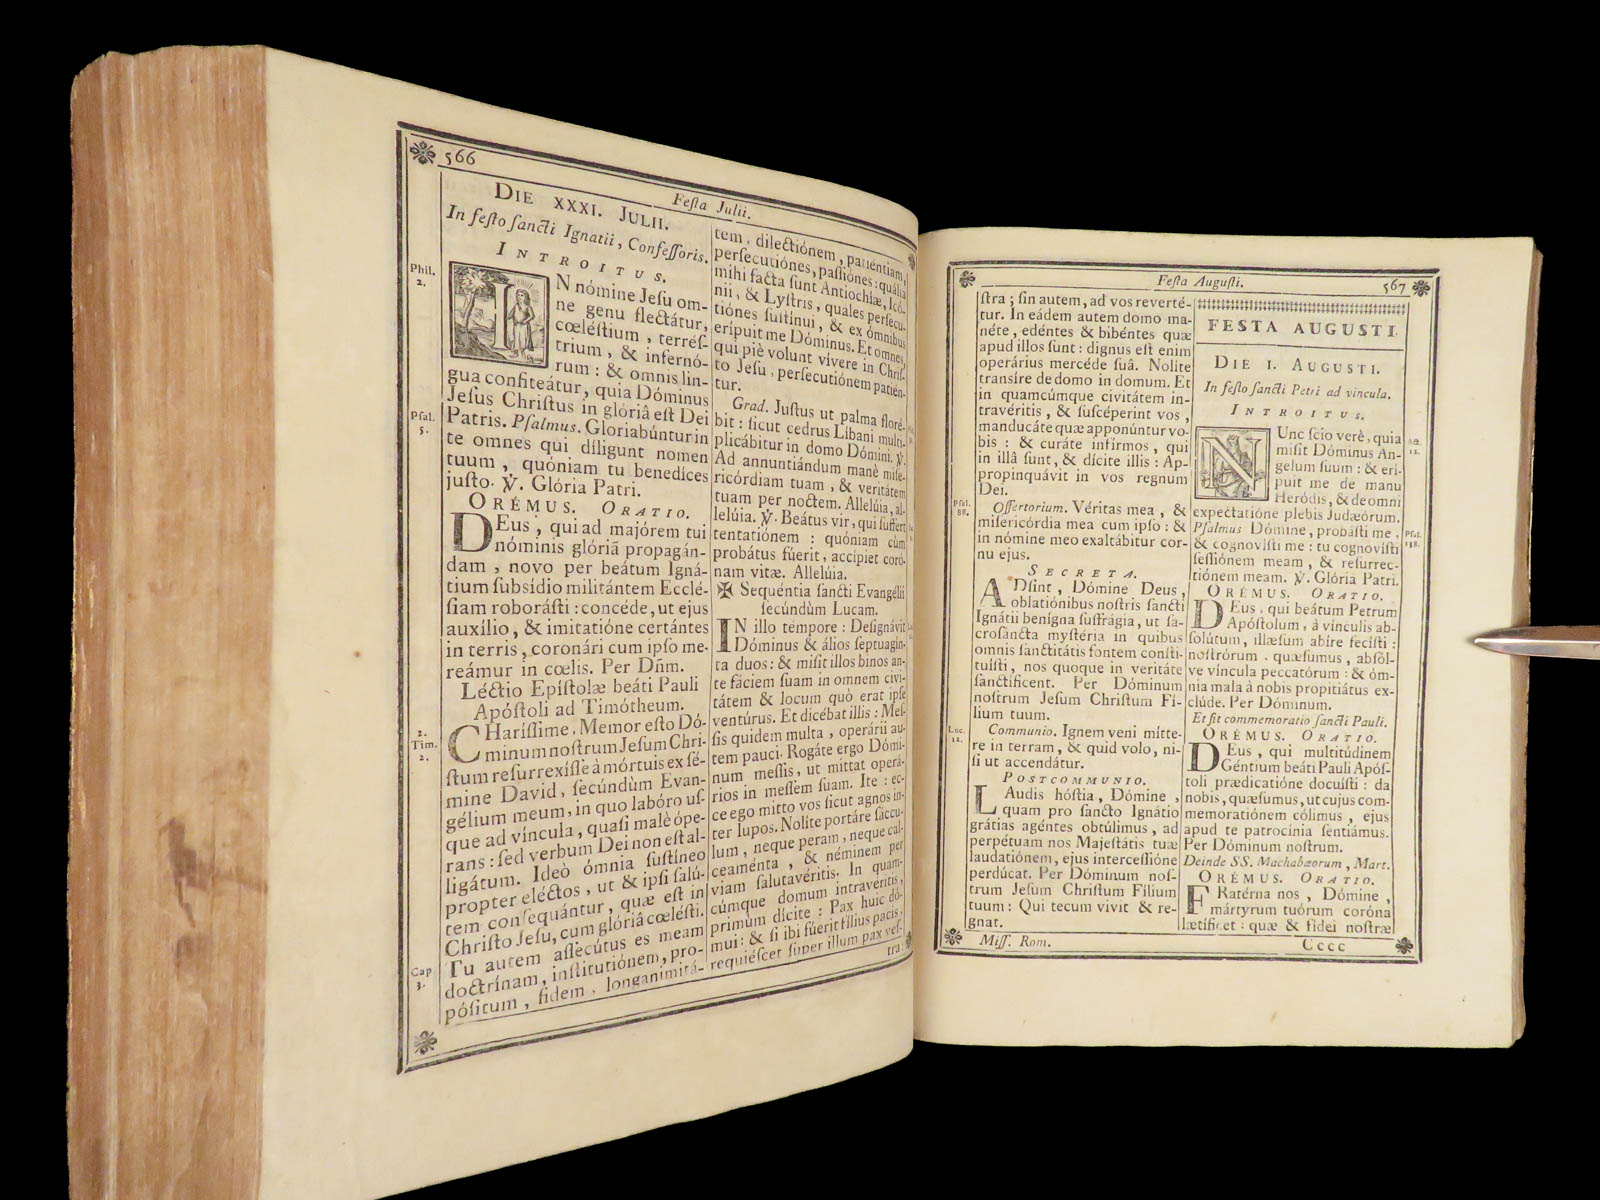 566
Feſta Julii.
DIE XXXI. JULII.
In feſto ſancti Ignatii, Confeſſoris.
INTROITUS.
Phil. 2.
IN nómine Jeſu om-
ne genu flectátur,
cœléſtium, terréſ-
trium, & infernó-
rum: & omnis lin-
gua confiteátur, quia Dóminus
Jeſus Chriſtus in glóriâ eſt Dei
Pſal. 5.
Patris. Pſalmus. Gloriabúntur in
te omnes qui díligunt nomen
tuum, quóniam tu benedíces
juſto. ℣. Glória Patri.
ORÉMUS. ORATIO.
DEus, qui ad majórem tui
nóminis glóriã propagán-
dam, novo per beátum Igná-
tium ſubſídio militántem Ecclé-
ſiam roboráſti: concéde, ut ejus
auxílio, & imitatióne certántes
in terris, coronári cum ipſo me-
reámur in cœlis. Per Dñm.
Léctio Epíſtolæ beáti Pauli
Apóſtoli ad Timótheum.
2. Tim. 2.
CHariſſime, Memor eſto Dó-
minum noſtrum Jeſum Chri-
ſtum reſurrexíſſe à mórtuis ex ſé-
mine David, ſecúndùm Evan-
gélium meum, in quo labóro uſ-
que ad víncula, quaſi malè ópe-
rans: ſed verbum Dei non eſt al-
ligátum. Ideò ómnia ſuſtíneo
propter eléctos, ut & ipſi ſalú-
tem conſequántur, quæ eſt in
Chriſto Jeſu, cum glóriâ cœléſti.
Cap 3.
Tu autem aſſecútus es meam
doctrínam, inſtitutiónem, pro-
póſitum, fidem, longanimitá-
tem, dilectiónem, patiéntiam,
perſecutiónes, paſſiónes: quália
mihi facta ſunt Antiochíæ, Icó-
nii, & Lyſtris, quales perſecu-
tiónes ſuſtínui, & ex ómnibus
erípuit me Dóminus. Et omnes,
qui piè volunt vívere in Chriſ-
to Jeſu, perſecutiónem patién-
tur.
Grad. Juſtus ut palma floré-
bit: ſicut cedrus Líbani multi-
plicábitur in domo Dómini. ℣.
Ad annuntiándum manè miſe-
ricórdiam tuam, & veritátem
tuam per noctem. Allelúia, al-
lelúia. ℣. Beátus vir, qui ſuffert
tentatiónem: quóniam cùm
probátus fúerit, accípiet coró-
nam vitæ. Allelúia.
✠ Sequéntia ſancti Evangélii
ſecúndùm Lucam.
IN illo témpore: Deſignávit
Dóminus & álios ſeptuagín-
ta duos: & miſit illos binos an-
te fáciem ſuam in omnem civi-
tátem & locum quò erat ipſe
ventúrus. Et dicébat illis: Meſ-
ſis quidem multa, operárii au-
tem pauci. Rogáte ergo Dómi-
num meſſis, ut mittat operá-
rios in meſſem ſuam. Ite: ec-
ce ego mitto vos ſicut agnos in-
ter lupos. Nolíte portáre ſáccu-
lum, neque peram, neque cal-
ceaménta, & néminem per
viam ſalutavéritis. In quam-
cúmque domum intravéritis,
primùm dícite: Pax huic dó-
mui: & ſi ibi fúerit fílius pacis,
requiéſcet ſuper illum pax veſ-
tra:
Feſta Auguſti.
567
ſtra; ſin autem, ad vos reverté-
tur. In eádem autem domo ma-
néte, edéntes & bibéntes quæ
apud illos ſunt: dignus eſt enim
operárius mercéde ſuâ. Nolíte
tranſíre de domo in domum. Et
in quamcúmque civitátem in-
travéritis, & ſuſcéperint vos,
manducáte quæ apponúntur vo-
bis: & curáte infírmos, qui
in illâ ſunt, & dícite illis: Ap-
propinquávit in vos regnum
Dei.
Pſal. 88.
Offertorium. Véritas mea, &
miſericórdia mea cum ipſo: &
in nómine meo exaltábitur cor-
nu ejus.
SECRETA.
ADſint, Dómine Deus,
oblatiónibus noſtris ſancti
Ignátii benígna ſuffrágia, ut ſa-
croſáncta myſtéria in quibus
omnis ſanctitátis fontem conſti-
tuíſti, nos quoque in veritáte
ſanctíficent. Per Dóminum
noſtrum Jeſum Chriſtum Fí-
lium tuum.
Luc. 12.
Communio. Ignem veni mítte-
re in terram, & quid volo, ni-
ſi ut accendátur.
POSTCOMMUNIO.
LAudis hóſtia, Dómine,
quam pro ſancto Ignátio
grátias agéntes obtúlimus, ad
perpétuam nos Majeſtátis tuæ
laudatiónem, ejus interceſſióne
perdúcat. Per Dóminum noſ-
trum Jeſum Chriſtum Fílium
tuum: Qui tecum vivit & re-
gnat.
FESTA AUGUSTI.
DIE I. AUGUSTI.
In feſto ſancti Petri ad vincula.
INTROITUS.
NUnc ſcio verè, quia
miſit Dóminus An-
gelum ſuum: & erí-
puit me de manu
Heródis, & de omni
expectatióne plebis Judæórum.
Pſal. 138.
Pſalmus Dómine, probáſti me,
& cognovíſti me: tu cognovíſti
ſeſſiónem meam, & reſurrec-
tiónem meam. ℣. Glória Patri.
ORÉMUS. ORATIO.
DEus, qui beátum Petrum
Apóſtolum, à vínculis ab-
ſolútum, illæſum abíre fecíſti:
noſtrórum, quæſumus, abſól-
ve víncula peccatórum: & óm-
nia mala à nobis propitiátus ex-
clúde. Per Dóminum.
Et fit commemoratio ſancti Pauli.
ORÉMUS. ORATIO.
DEus, qui multitúdinem
Géntium beáti Pauli Apóſ-
toli prædicatióne docuíſti: da
nobis, quæſumus, ut cujus com-
memoratiónem cólimus, ejus
apud te patrocínia ſentiámus.
Per Dóminum noſtrum.
Deinde SS. Machabæorum, Mart.
ORÉMUS. ORATIO.
FRatérna nos, Dómine,
mártyrum tuórum coróna
lætíficet: quæ & fídei noſtræ
Miſſ. Rom.
Cccc